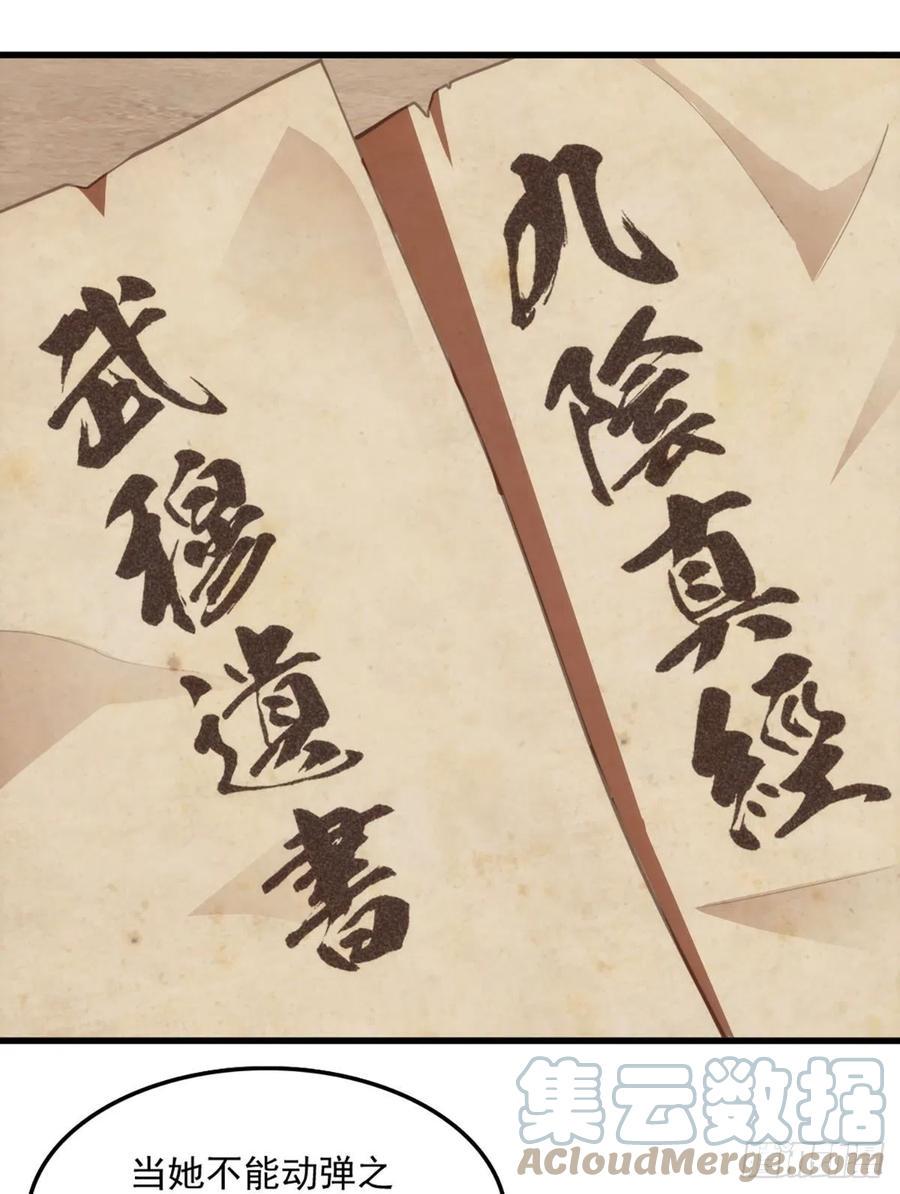 九陰真經
武穆遺書
集云数据
ACloudMerge.com
当她不能动弹之